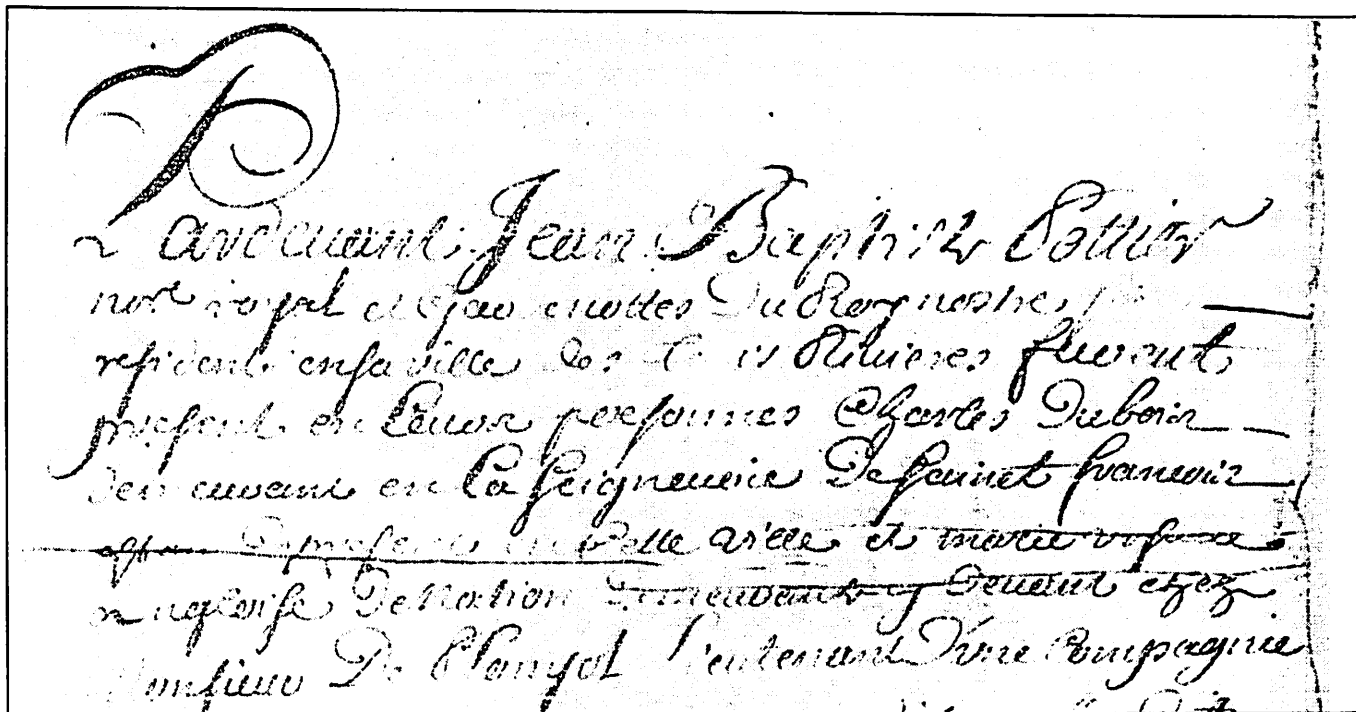 Pardevant Jean Baptiste Pottier
nore royal et garde nottes Du Roy nostre
resident en sa ville des Trois Rivieres furent
present en Leurs personnes Charles Dubois
demeurant en La seigneurie De sainct francois
Depresent en Cette ville et marie
angloise De Nation demeurant cy Devant chez
Monsieur De Lieutenant D'une Compagnie